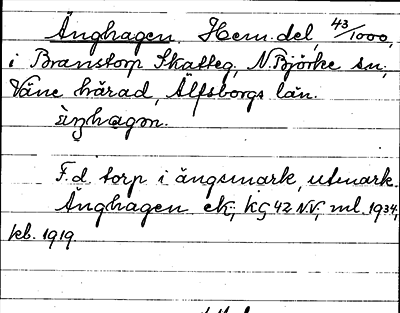 Änghagen, Hem.del, 43/1000,
i Branstorp Skatteg, N.Björke sn,
Väne härad, Älfsborgs län.
F.d. torp i ängsmark, utmark.
Änghagen ek., kç 42 N.V., ml. 1934,
kb. 1919